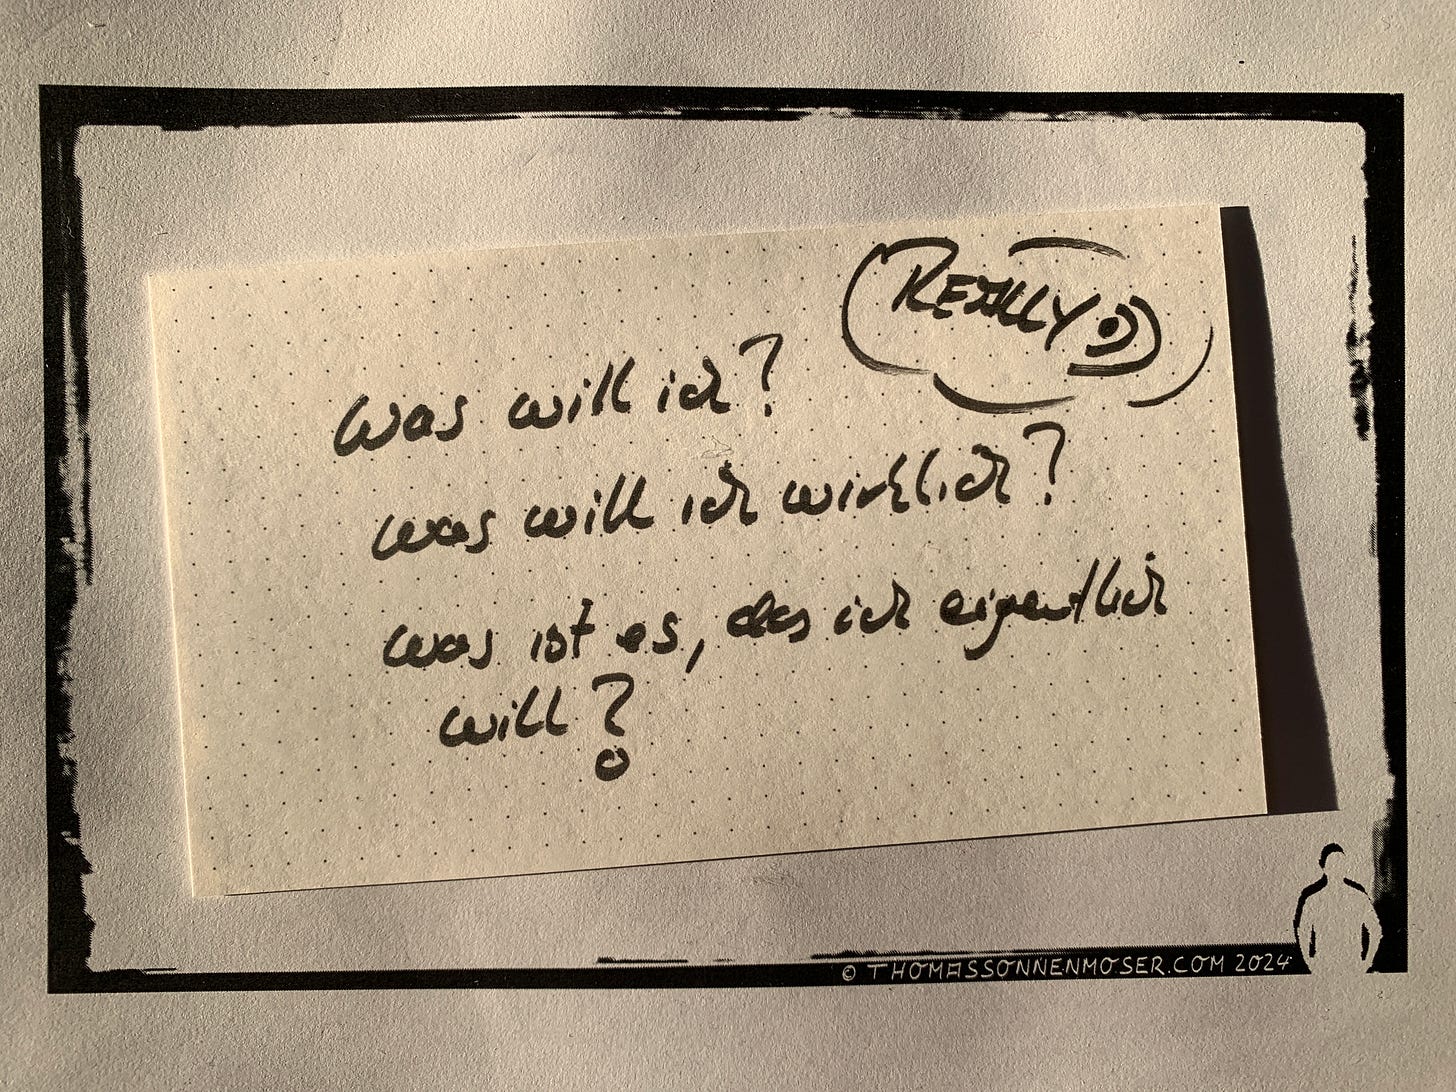 REALLY
Was will ich?
was will ich wirklich?
was ist es, das ich eigentlich
will?
© THOMASSONNENMOSER.COM 2024